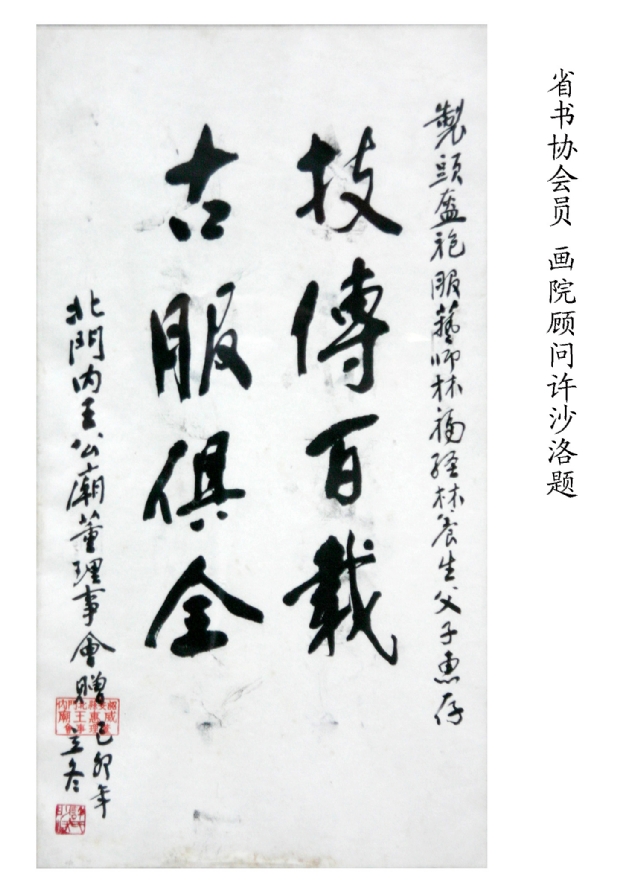 省书协会员 画院顾问许沙洛题
製頭盔袍服藝师林福经林養生父子惠存
技傳百載
古服俱全
北門内王公廟董理事會贈
己卯年
立冬